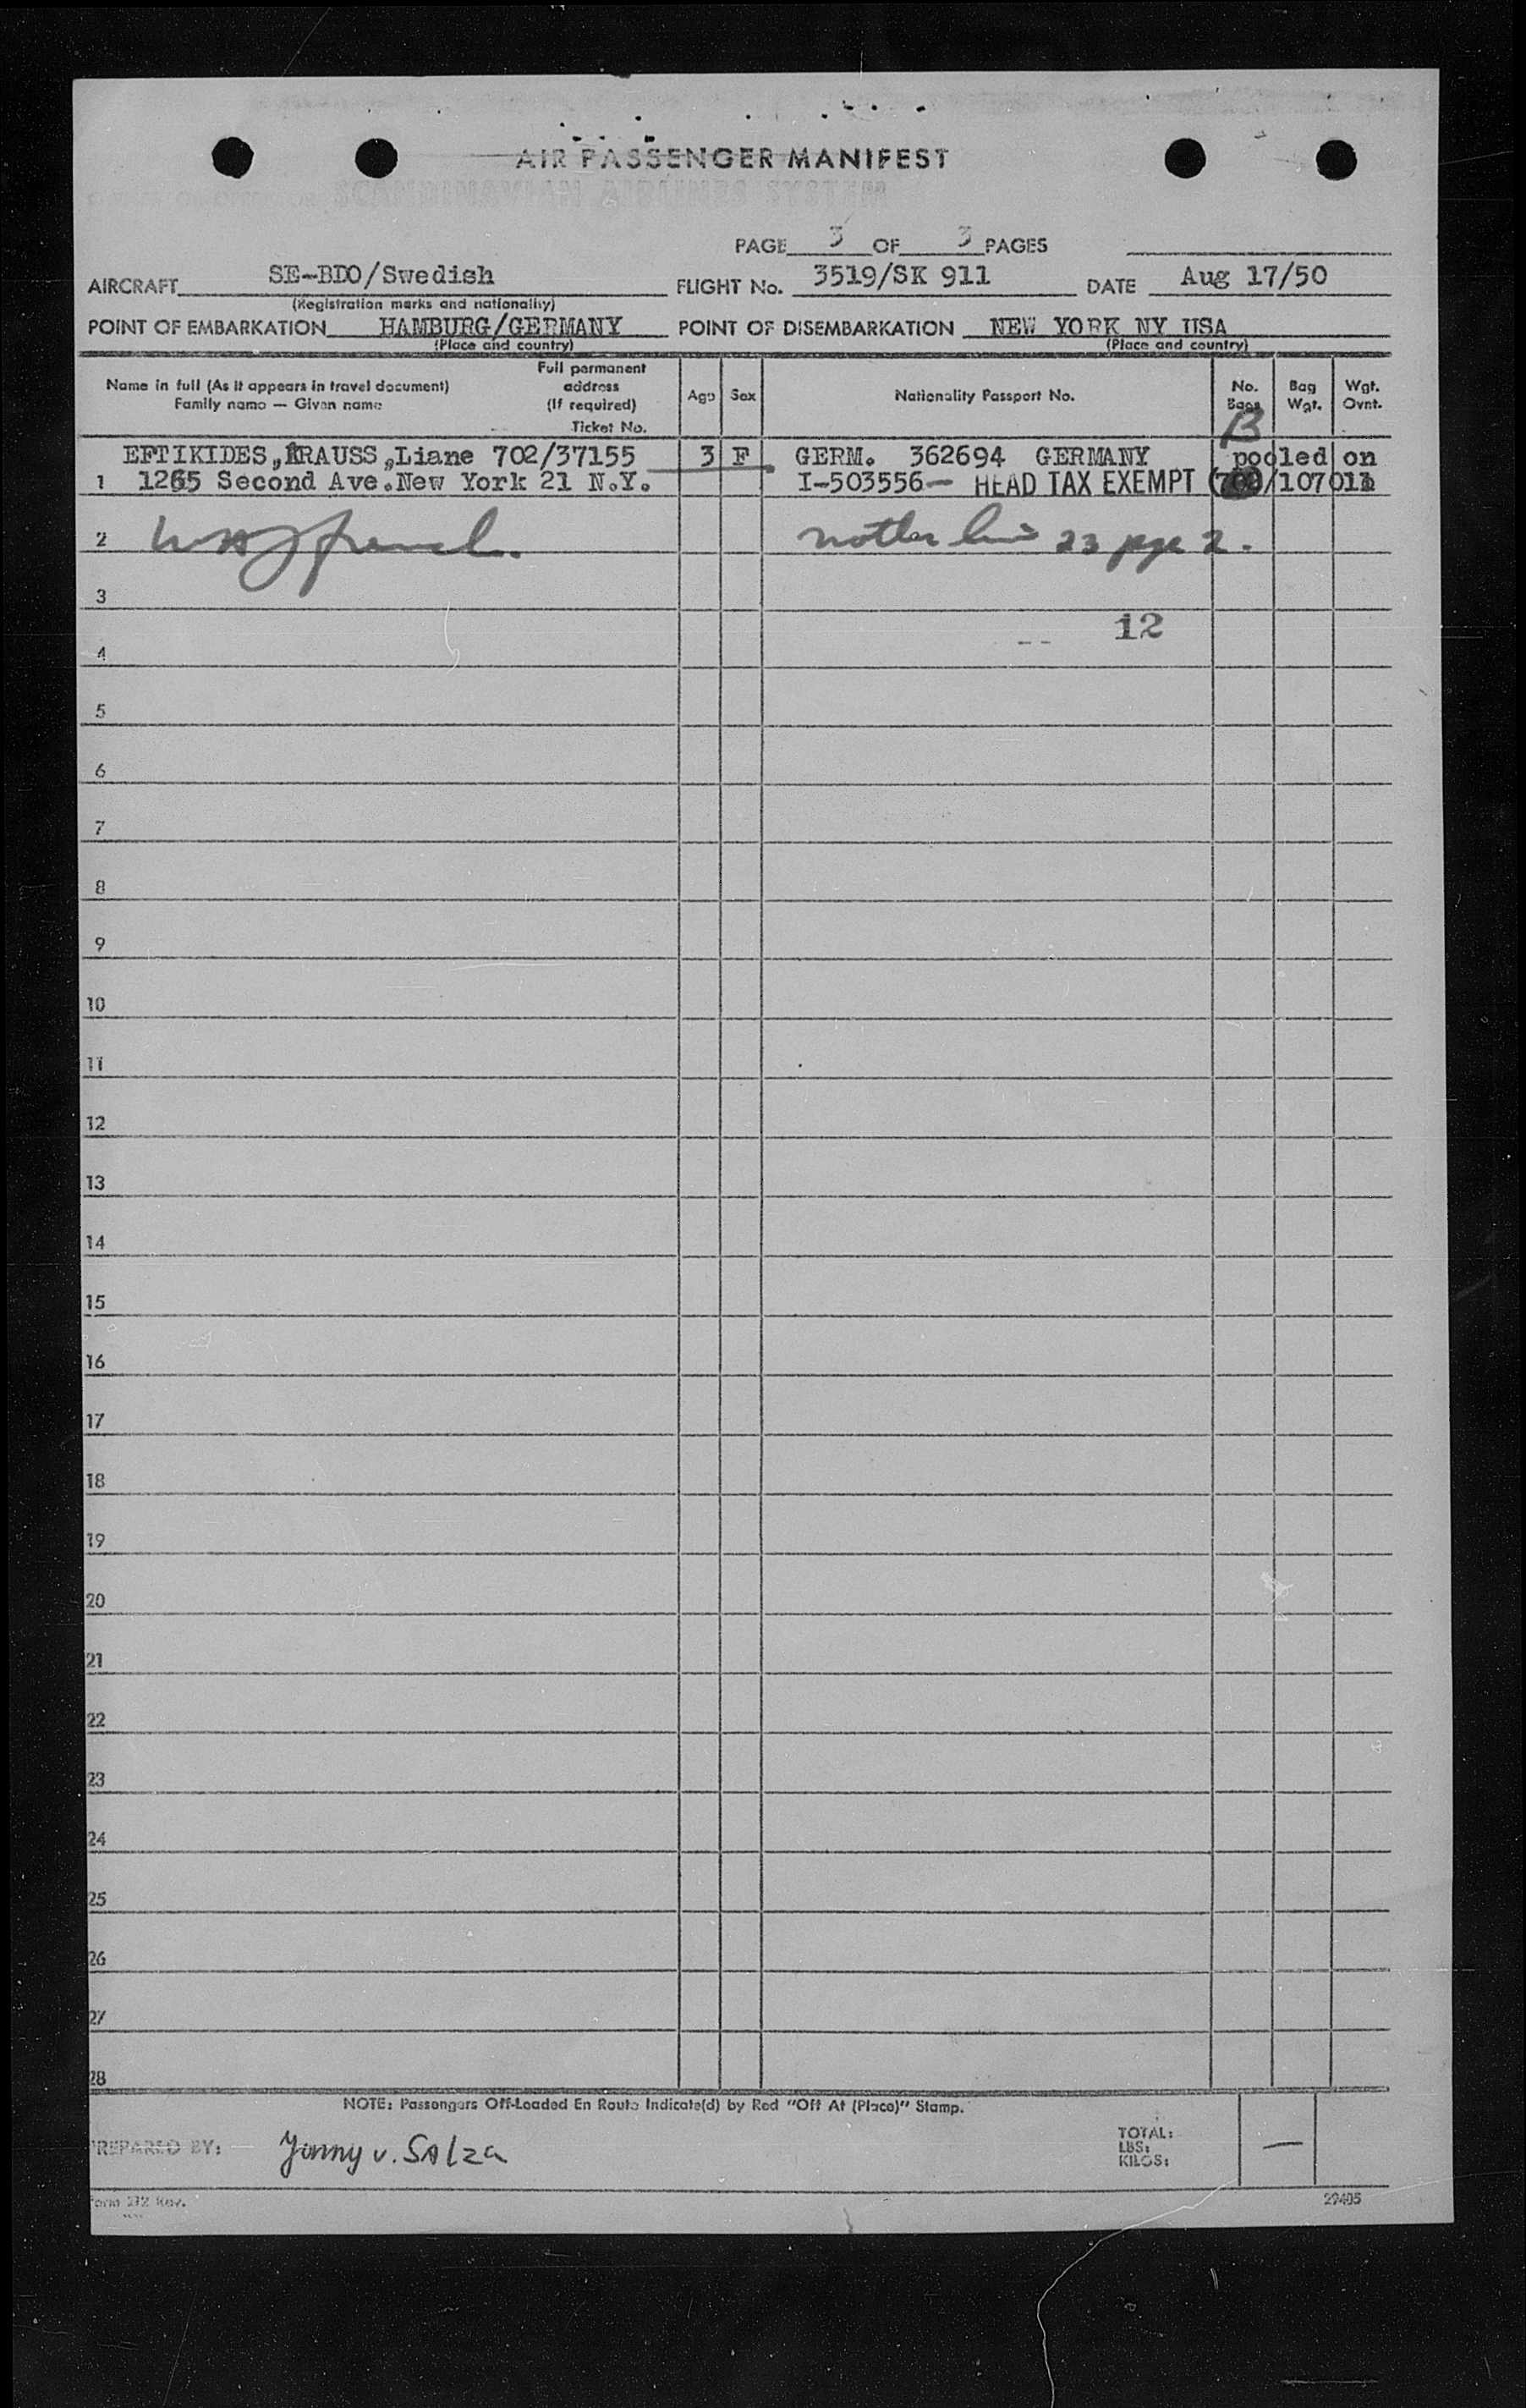 AIR PASSENGER MANIFEST
PAGE 3 OF 3 PAGES
AIRCRAFT SE-BDO/Swedish FLIGHT No. 3519/SK 911 DATE Aug 17/50
(Registration marks and nationality)
POINT OF EMBARKATION HAMBURG/GERMANY POINT OF DISEMBARKATION NEW YORK NY USA
(Place and country) (Place and country)
Name in full (As it appears in travel document) Family name — Given name Full permanent address (If required) Ticket No. Age Sex Nationality Passport No. No. Bags Bag Wgt. Wgt. Ovnt.
B
EFTIKIDES,KRAUSS,Liane 702/37155 3 F GERM. 362694 GERMANY pooled on
1 1265 Second Ave.New York 21 N.Y. I-503556- HEAD TAX EXEMPT /107011
2 mother line 23 page 2.
3
12
4
5
6
7
8
9
10
11
12
13
14
15
16
17
18
19
20
21
22
23
24
25
26
27
28
NOTE: Passengers Off-Loaded En Route Indicate(d) by Red "Off At (Place)" Stamp.
PREPARED BY: Jonny v. Salza TOTAL:
LBS: —
KILOS:
Form 212 Rev. 29405